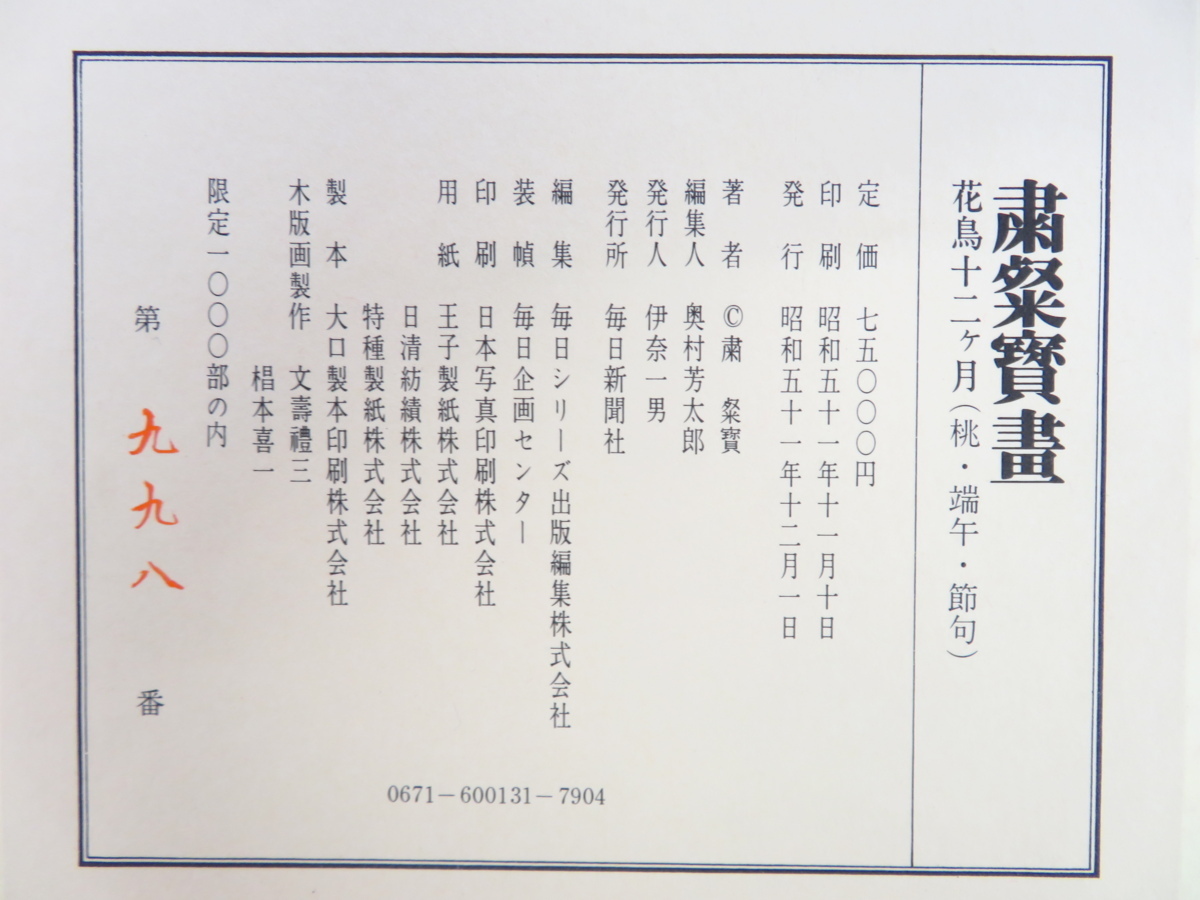 肅粲寳畫
花鳥十二ヶ月(桃・端午・節句)
定価 七五〇〇〇円
印刷 昭和五十一年十一月十日
発行 昭和五十一年十二月一日
著者 ©肅 粲寳
編集人 奥村芳太郎
発行人 伊奈一男
発行所 毎日新聞社
編集 毎日シリーズ出版編集株式会社
装幀 毎日企画センター
印刷 日本写真印刷株式会社
用紙 王子製紙株式会社
日清紡績株式会社
特種製紙株式会社
製本 大口製本印刷株式会社
木版画製作 文壽禮三
椙本喜一
限定一〇〇〇部の内
第 九九八 番
0671-600131-7904